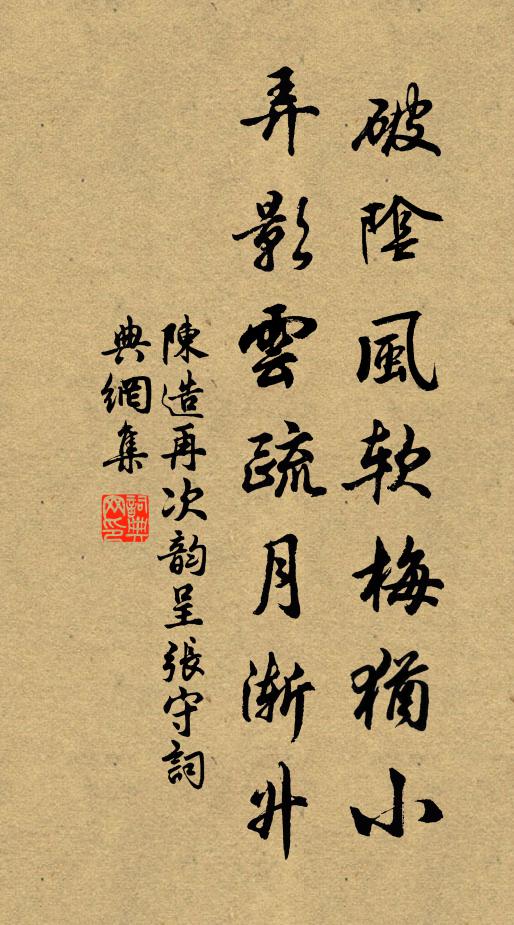 破陰風軟梅猶小
弄影雲疏月漸升
陳造再次韵呈張守詞
典網集
詞典網印